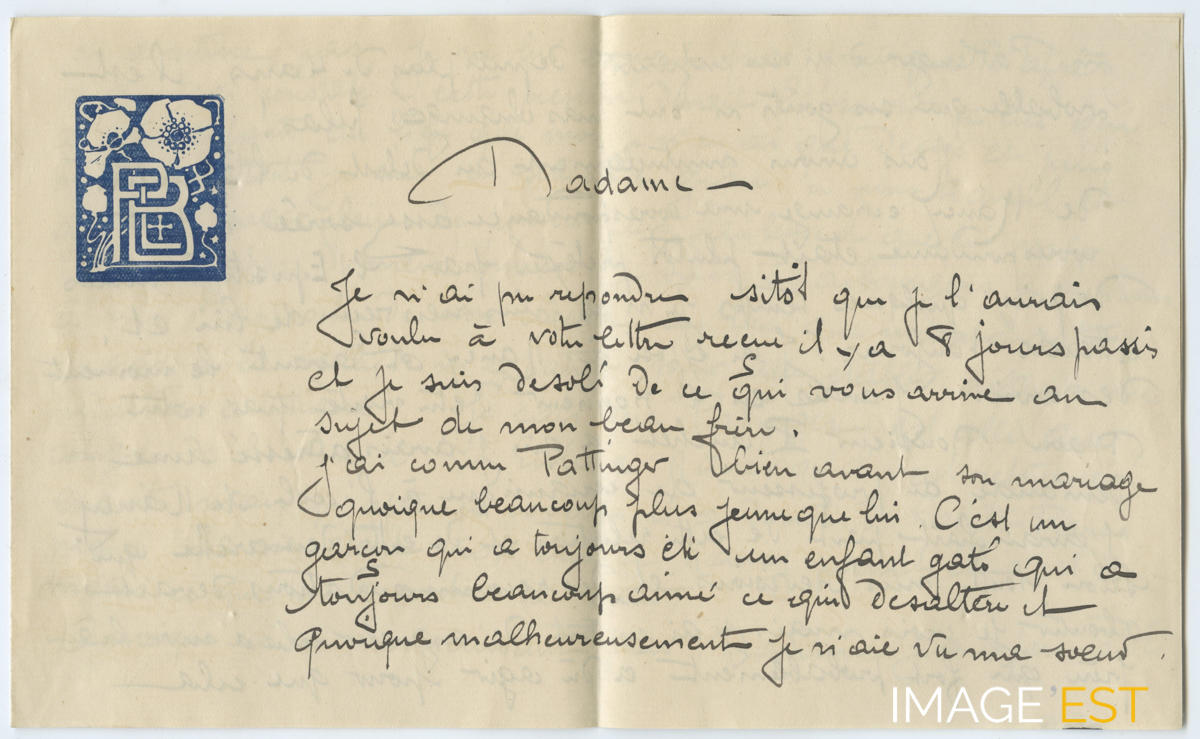 PB
Madame —
Je n'ai pu repondre sitôt que je l'aurais
voulu à votre lettre recue il y a 8 jours passés
et je suis desolé de ce qui vous arrive au
sujet de mon beau frère.
j'ai connu Pattinger bien avant son mariage
quoique beaucoup plus jeune que lui. C'est un
garçon qui a toujours été un enfant gaté qui a
toujours beaucoup aimé ce qui desaltère et
quoique malheureusement je n'aie vu ma soeur
IMAGE EST